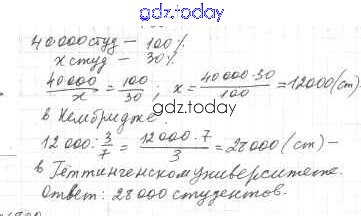 gdz.today
40000 студ – 100%
x студ – 30%
40000/x = 100/30 ; x = 40000·30/100 = 12000 (ст)
в Кембридже.
gdz.today
12000 : 3/7 = 12000·7/3 = 28000 (ст) –
в Гёттингенском университете.
Ответ: 28000 студентов.
gdz.today